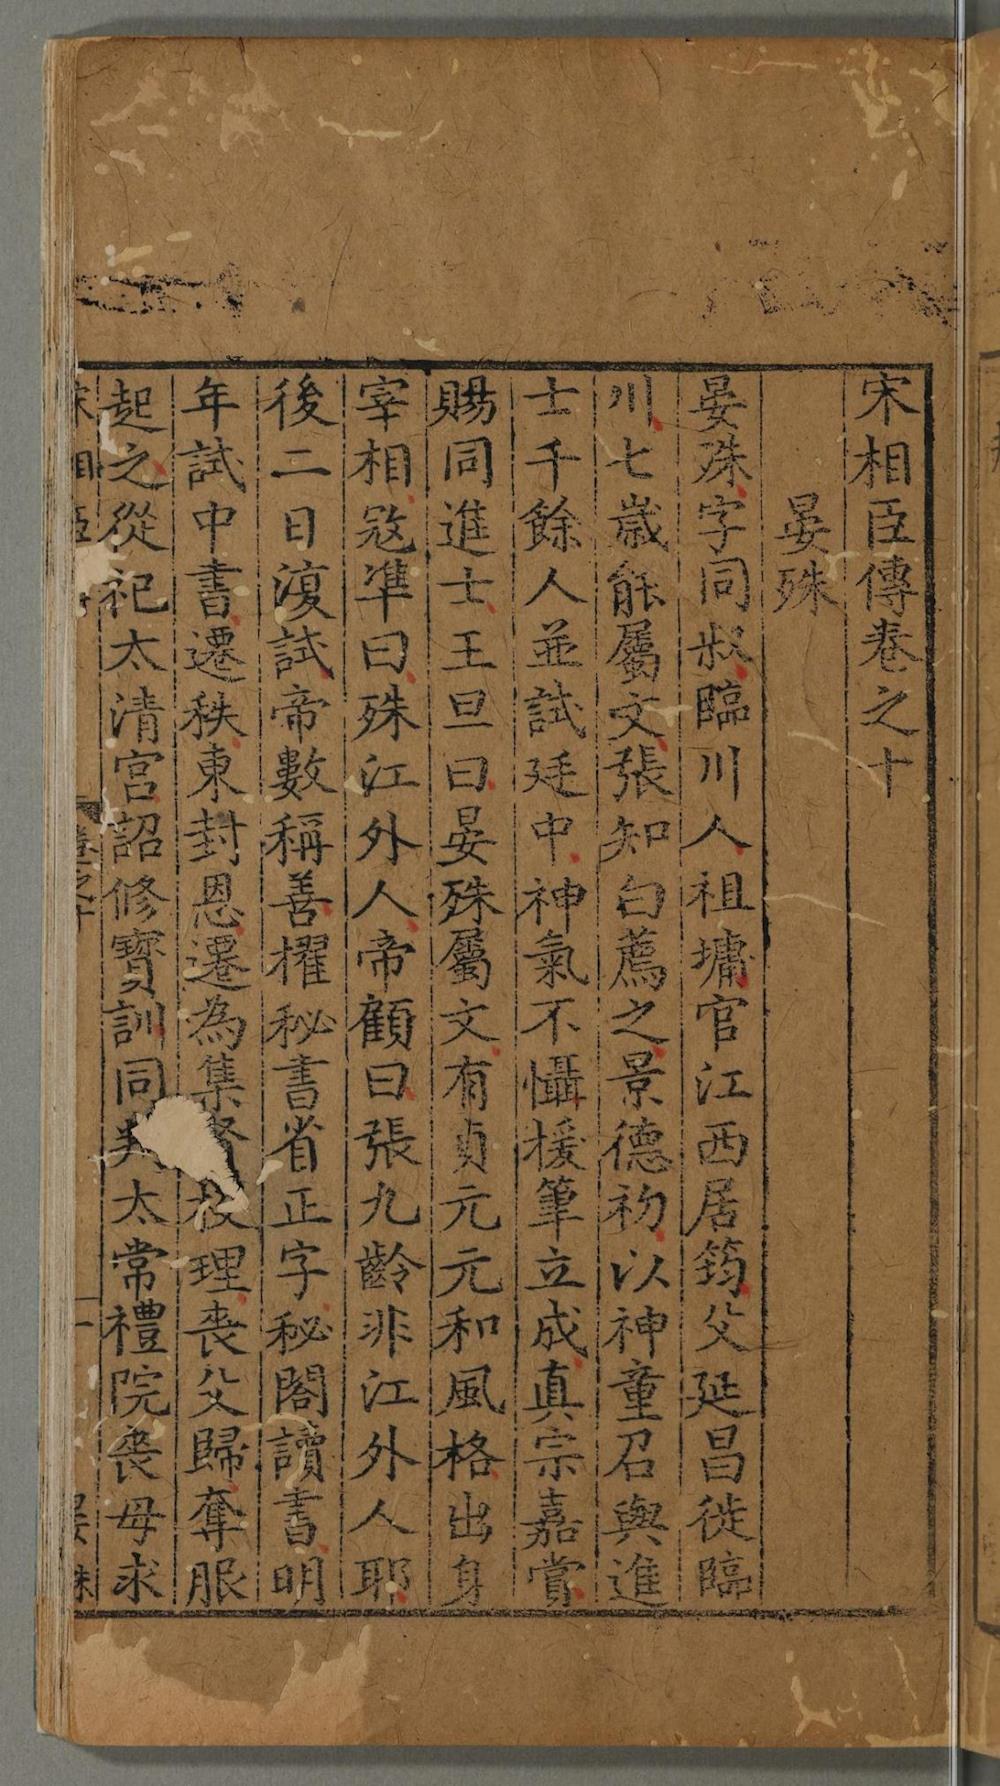 宋相臣傳卷之十
晏殊
晏殊字同叔臨川人祖墉官江西居筠父延昌徙臨
川七歲能屬文張知白薦之景德初以神童召與進
士千餘人並試廷中神氣不懾援筆立成真宗嘉賞
賜同進士王旦曰晏殊屬文有貞元元和風格出身
宰相㓂凖曰殊江外人帝顧曰張九齡非江外人耶
後二日復試帝數稱善擢秘書省正字秘閣讀書明
年試中書遷秩東封恩遷為集校理喪父歸奪服
起之從祀太清宮詔修寶訓同判太常禮院喪母求
宋相臣
卷之十
一
晏殊